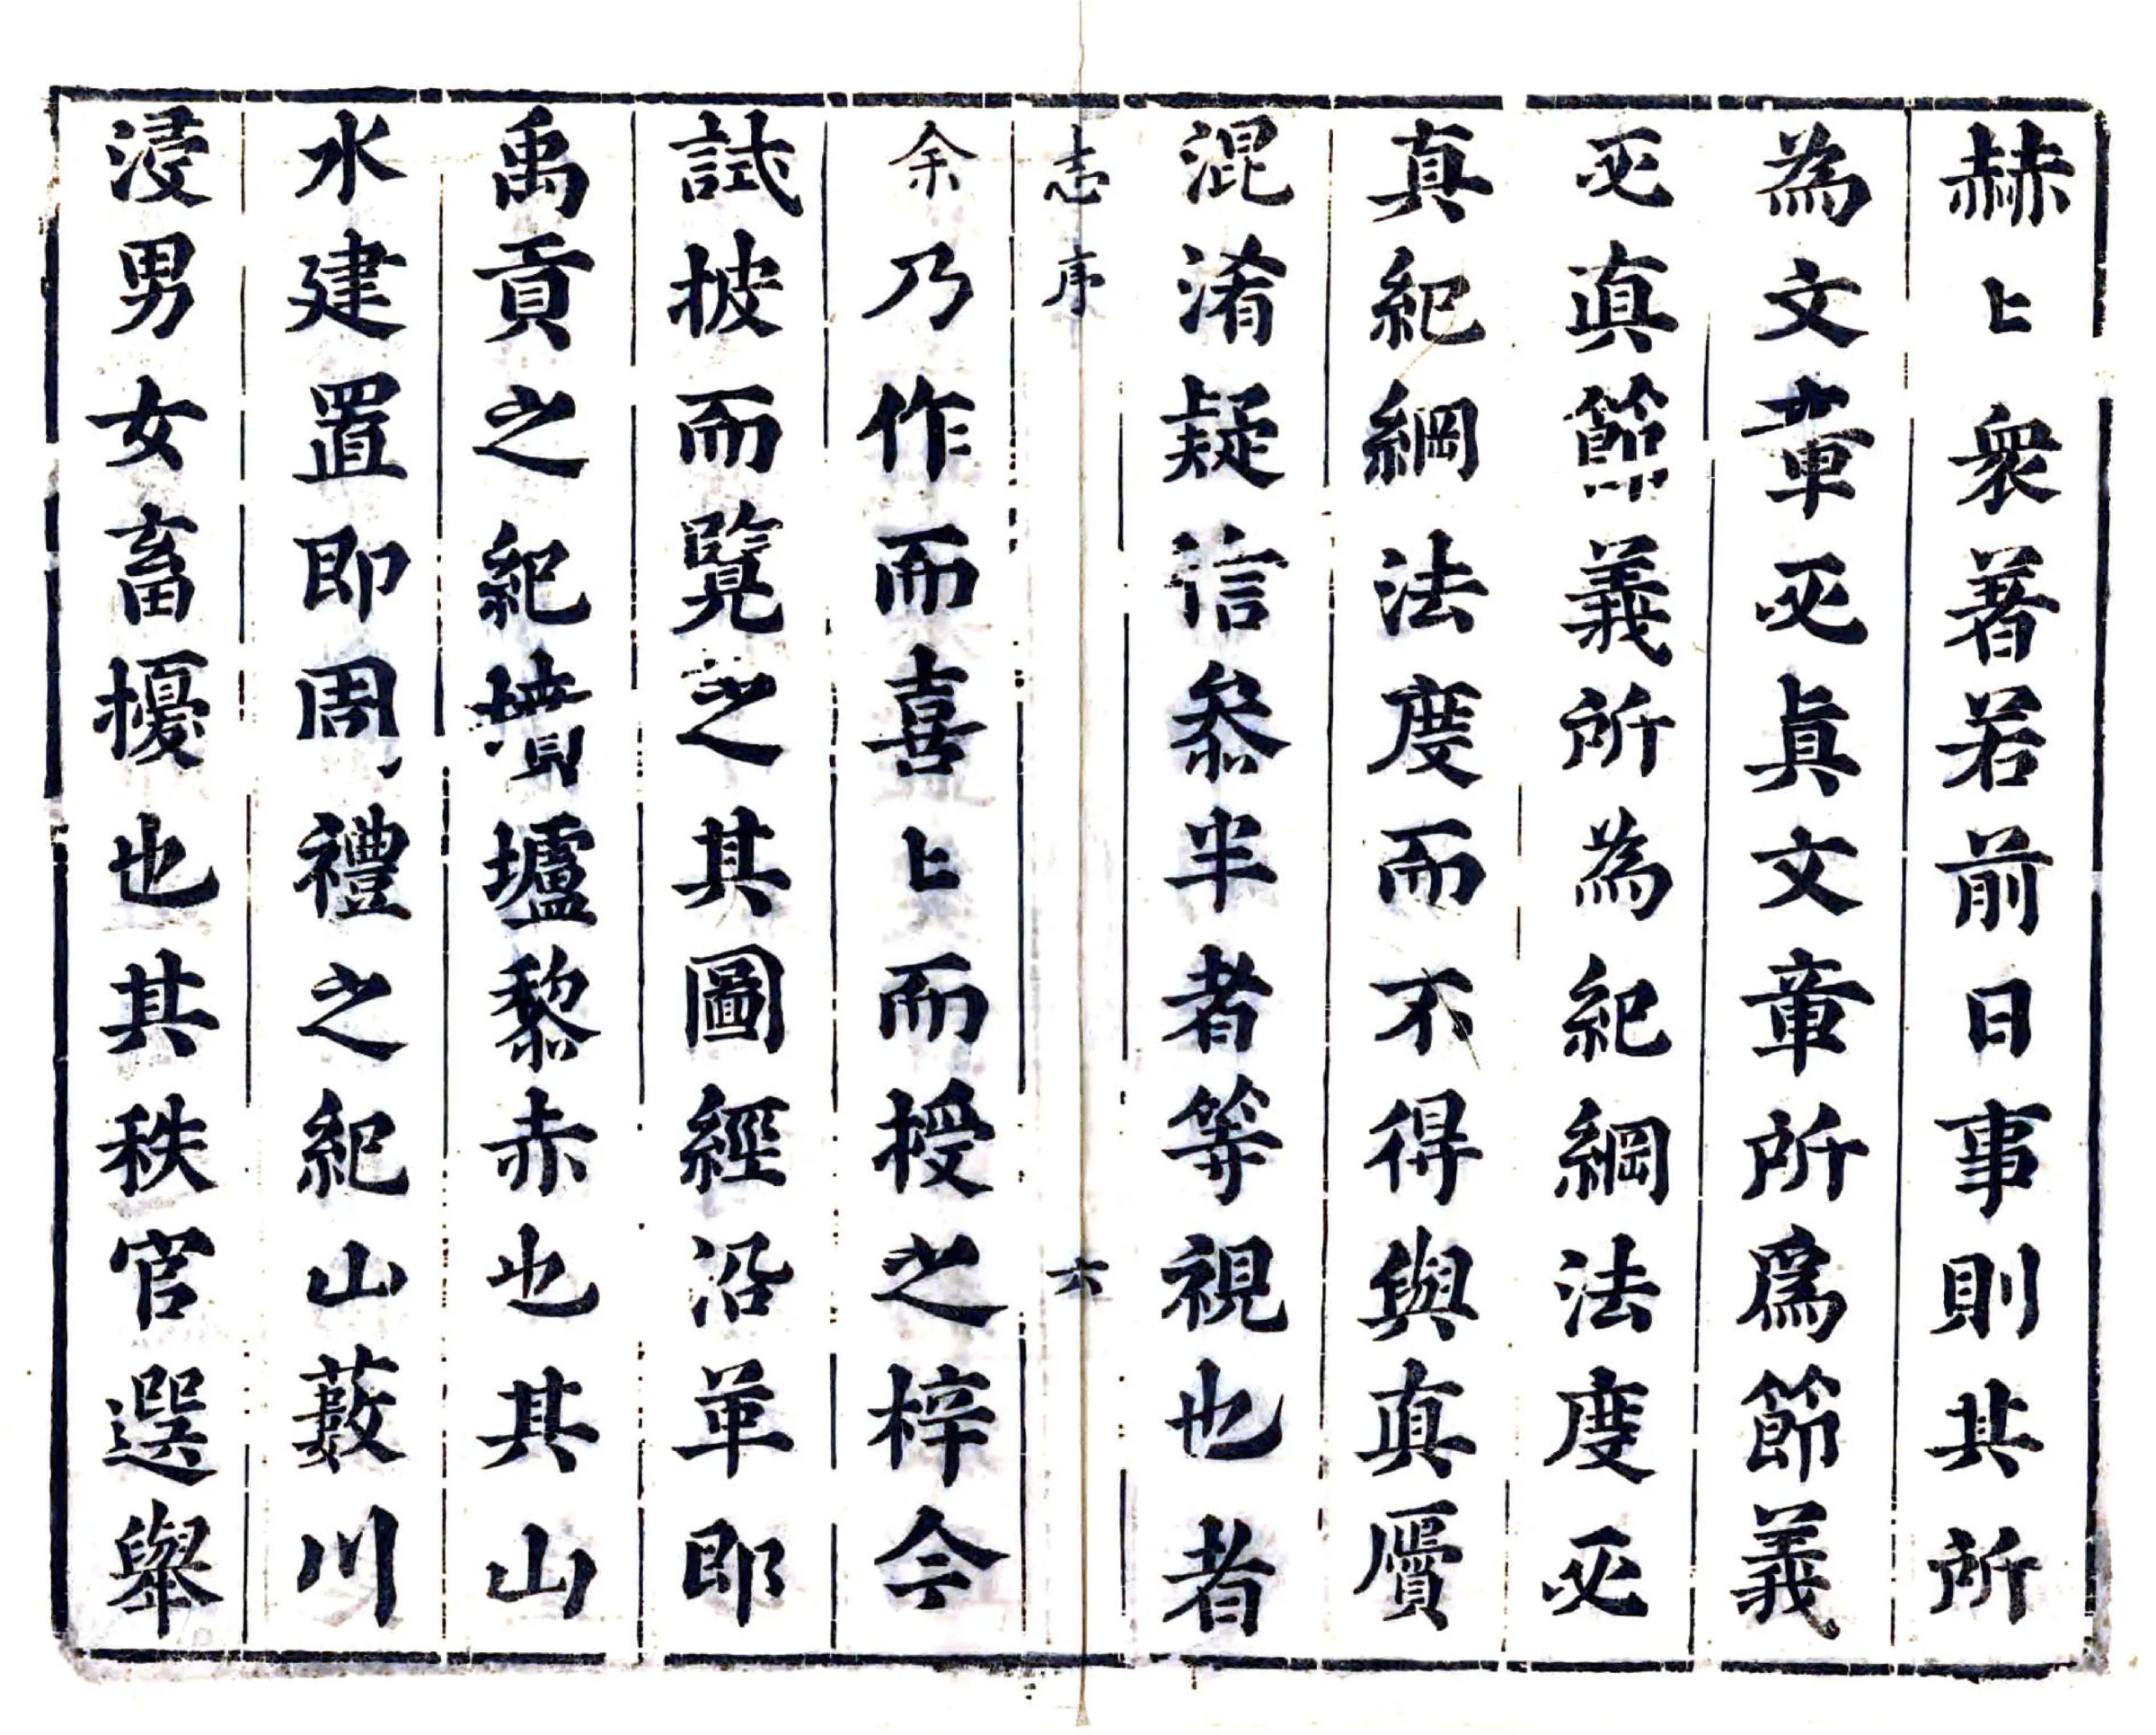 赫〻衆著若前日事則其所
為文章必眞文章所爲節義
必真節義所為紀綱法度必
真紀綱法度而不得與真贋
混淆疑信叅半者等視也者
志序 六
余乃作而喜〻而授之梓今
試披而覽之其圖經沿革即
禹貢之紀墳壚黎赤也其山
水建置即周禮之紀山藪川
浸男女畜擾也其秩官選舉